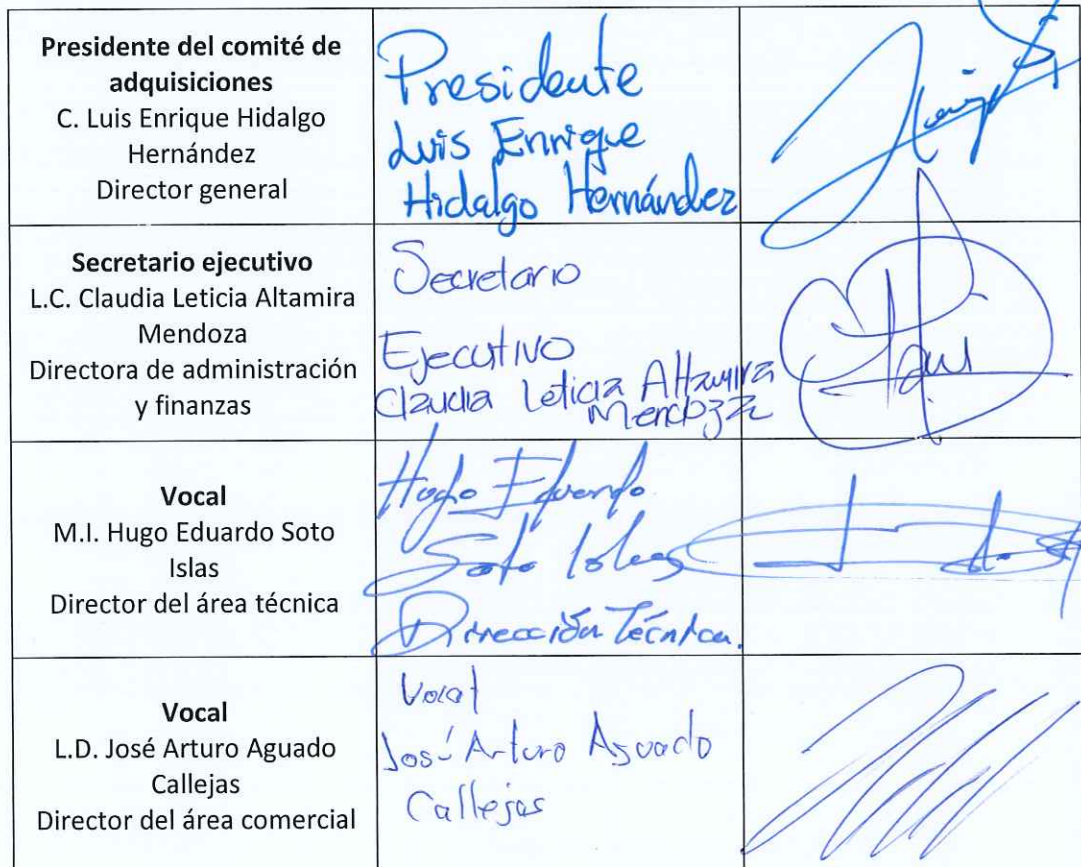 Presidente del comité de
adquisiciones
C. Luis Enrique Hidalgo
Hernández
Director general
Presidente
Luis Enrique
Hidalgo Hernández
Secretario ejecutivo
L.C. Claudia Leticia Altamira
Mendoza
Directora de administración
y finanzas
Secretario
Ejecutivo
Claudia Leticia Altamira
Mendoza
Vocal
M.I. Hugo Eduardo Soto
Islas
Director del área técnica
Hugo Eduardo
Soto Islas
Dirección Técnica.
Vocal
L.D. José Arturo Aguado
Callejas
Director del área comercial
Vocal
José Arturo Aguado
Callejas